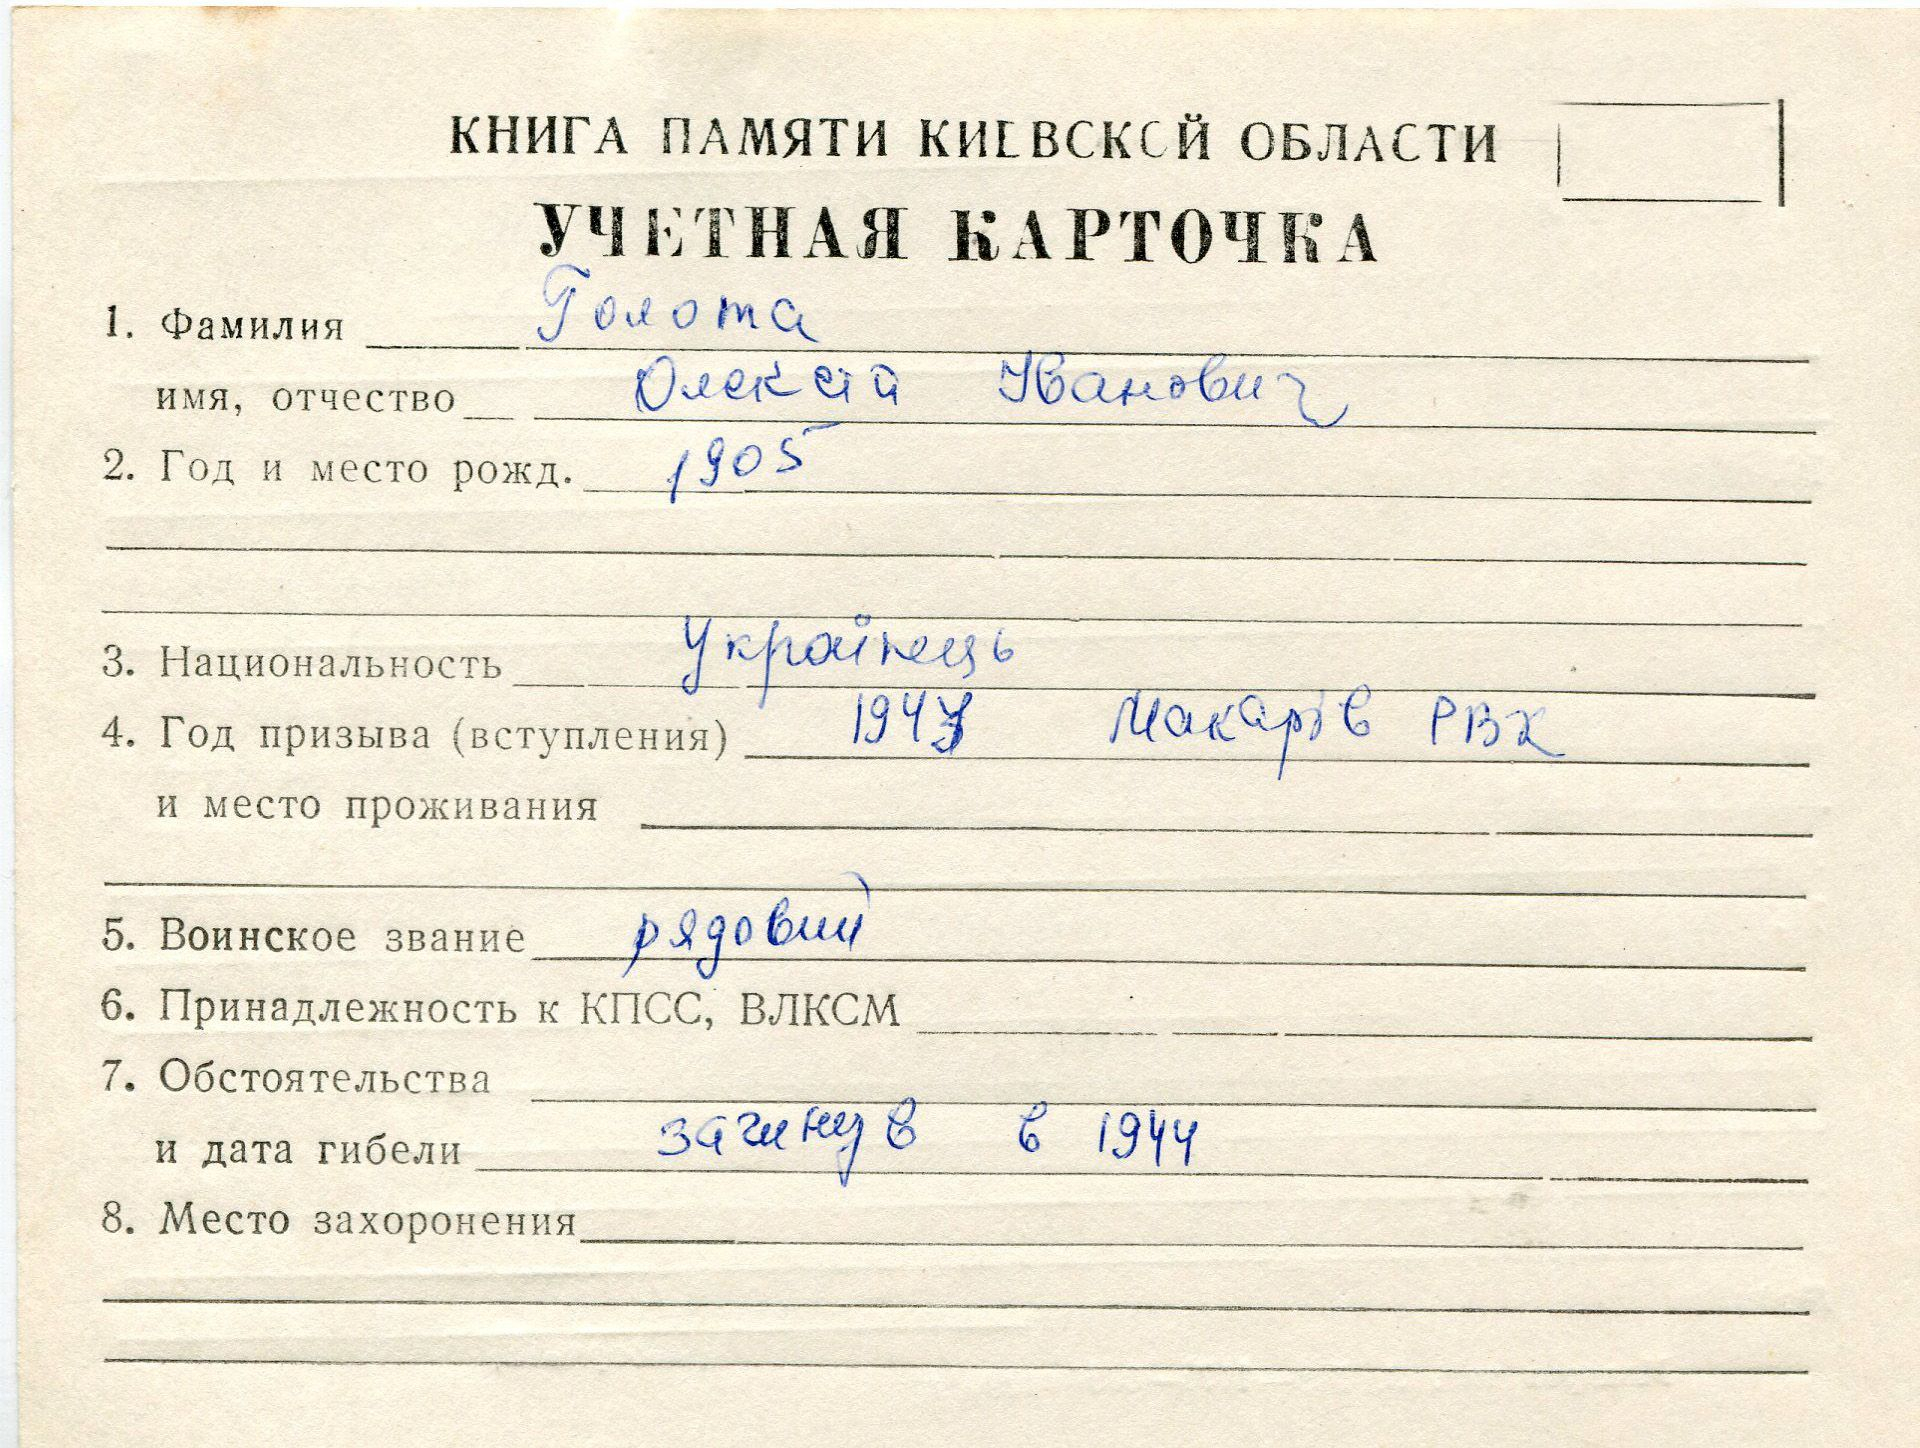 КНИГА ПАМЯТИ КИЕВСКОЙ ОБЛАСТИ
УЧЕТНАЯ КАРТОЧКА
1. Фамилия Голота
имя, отчество Олексій Іванович
2. Год и место рожд. 1905
3. Национальность Українець
4. Год призыва (вступления) Макарів РВК
и место проживания
5. Воинское звание рядовий
6. Принадлежность к КПСС, ВЛКСМ
7. Обстоятельства
и дата гибели загинув в 1944
8. Место захоронения